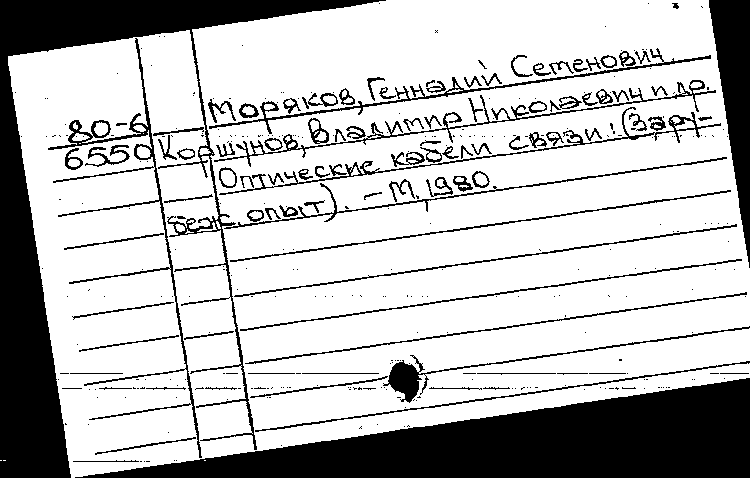 Моряков, Геннадий Семенович.
80-6 Коршунов, Владимир Николаевич и др.
6550 Оптические кабели связи: (Зару-
беж. опыт). - М, 1980.